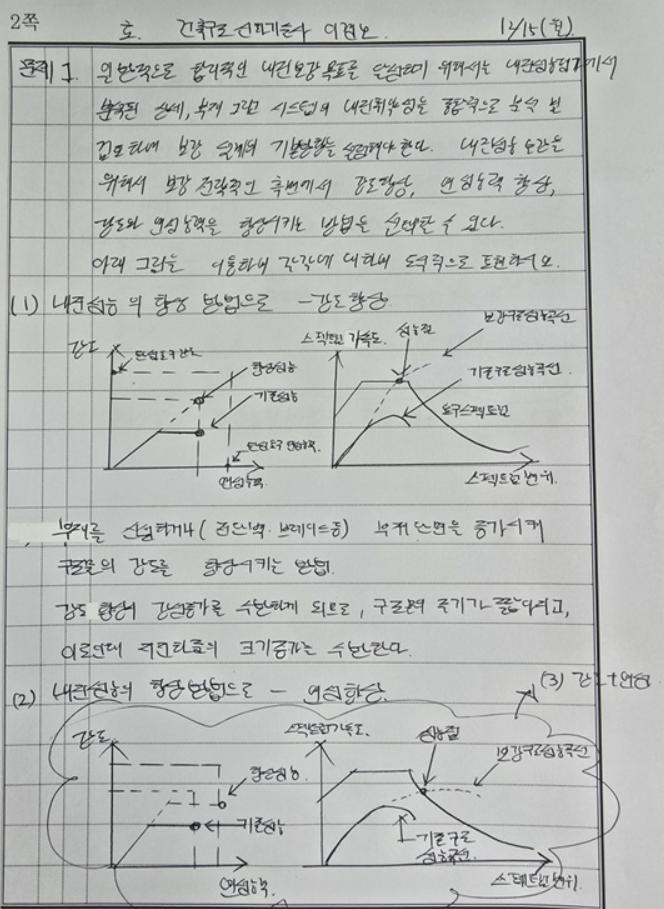 2쪽
건축구조
12/15(월)
문제 1. 일반적으로 합리적인 내진보강 목표를 달성하기 위해서는 내진성능평가에서
분석된 상세, 부재 그리고 시스템의 내진취약성을 종합적으로 분석 및
검토하여 보강 설계의 기본방향을 설정해야 한다. 내진성능 보강을
위해서 보강 전략적인 측면에서 강도향상, 연성능력 향상,
강도와 연성능력을 향상시키는 방법을 선택할 수 있다.
아래 그림을 이용하여 각각에 대하여 도식적으로 표현하시오.
(1) 내진성능의 향상 방법으로 - 강도향상
강도
향상성능
기존성능
연성능력
스펙트럼 가속도
성능점
보강구조성능곡선
기존구조성능곡선
요구스펙트럼
스펙트럼 변위
부재를 신설하거나 (전단벽·브레이스 등) 부재 단면을 증가시켜
구조물의 강도를 향상시키는 방법.
강도 향상이 강성증가를 수반하게 되므로, 구조물의 주기가 짧아지고,
이로인해 지진하중의 크기증가를 수반한다.
(2) 내진성능의 향상방법으로 - 연성향상.
(3) 강도+연성
강도
향상성능
기존성능
연성능력
스펙트럼가속도
성능점
보강구조성능곡선
기존구조
성능곡선
스펙트럼변위